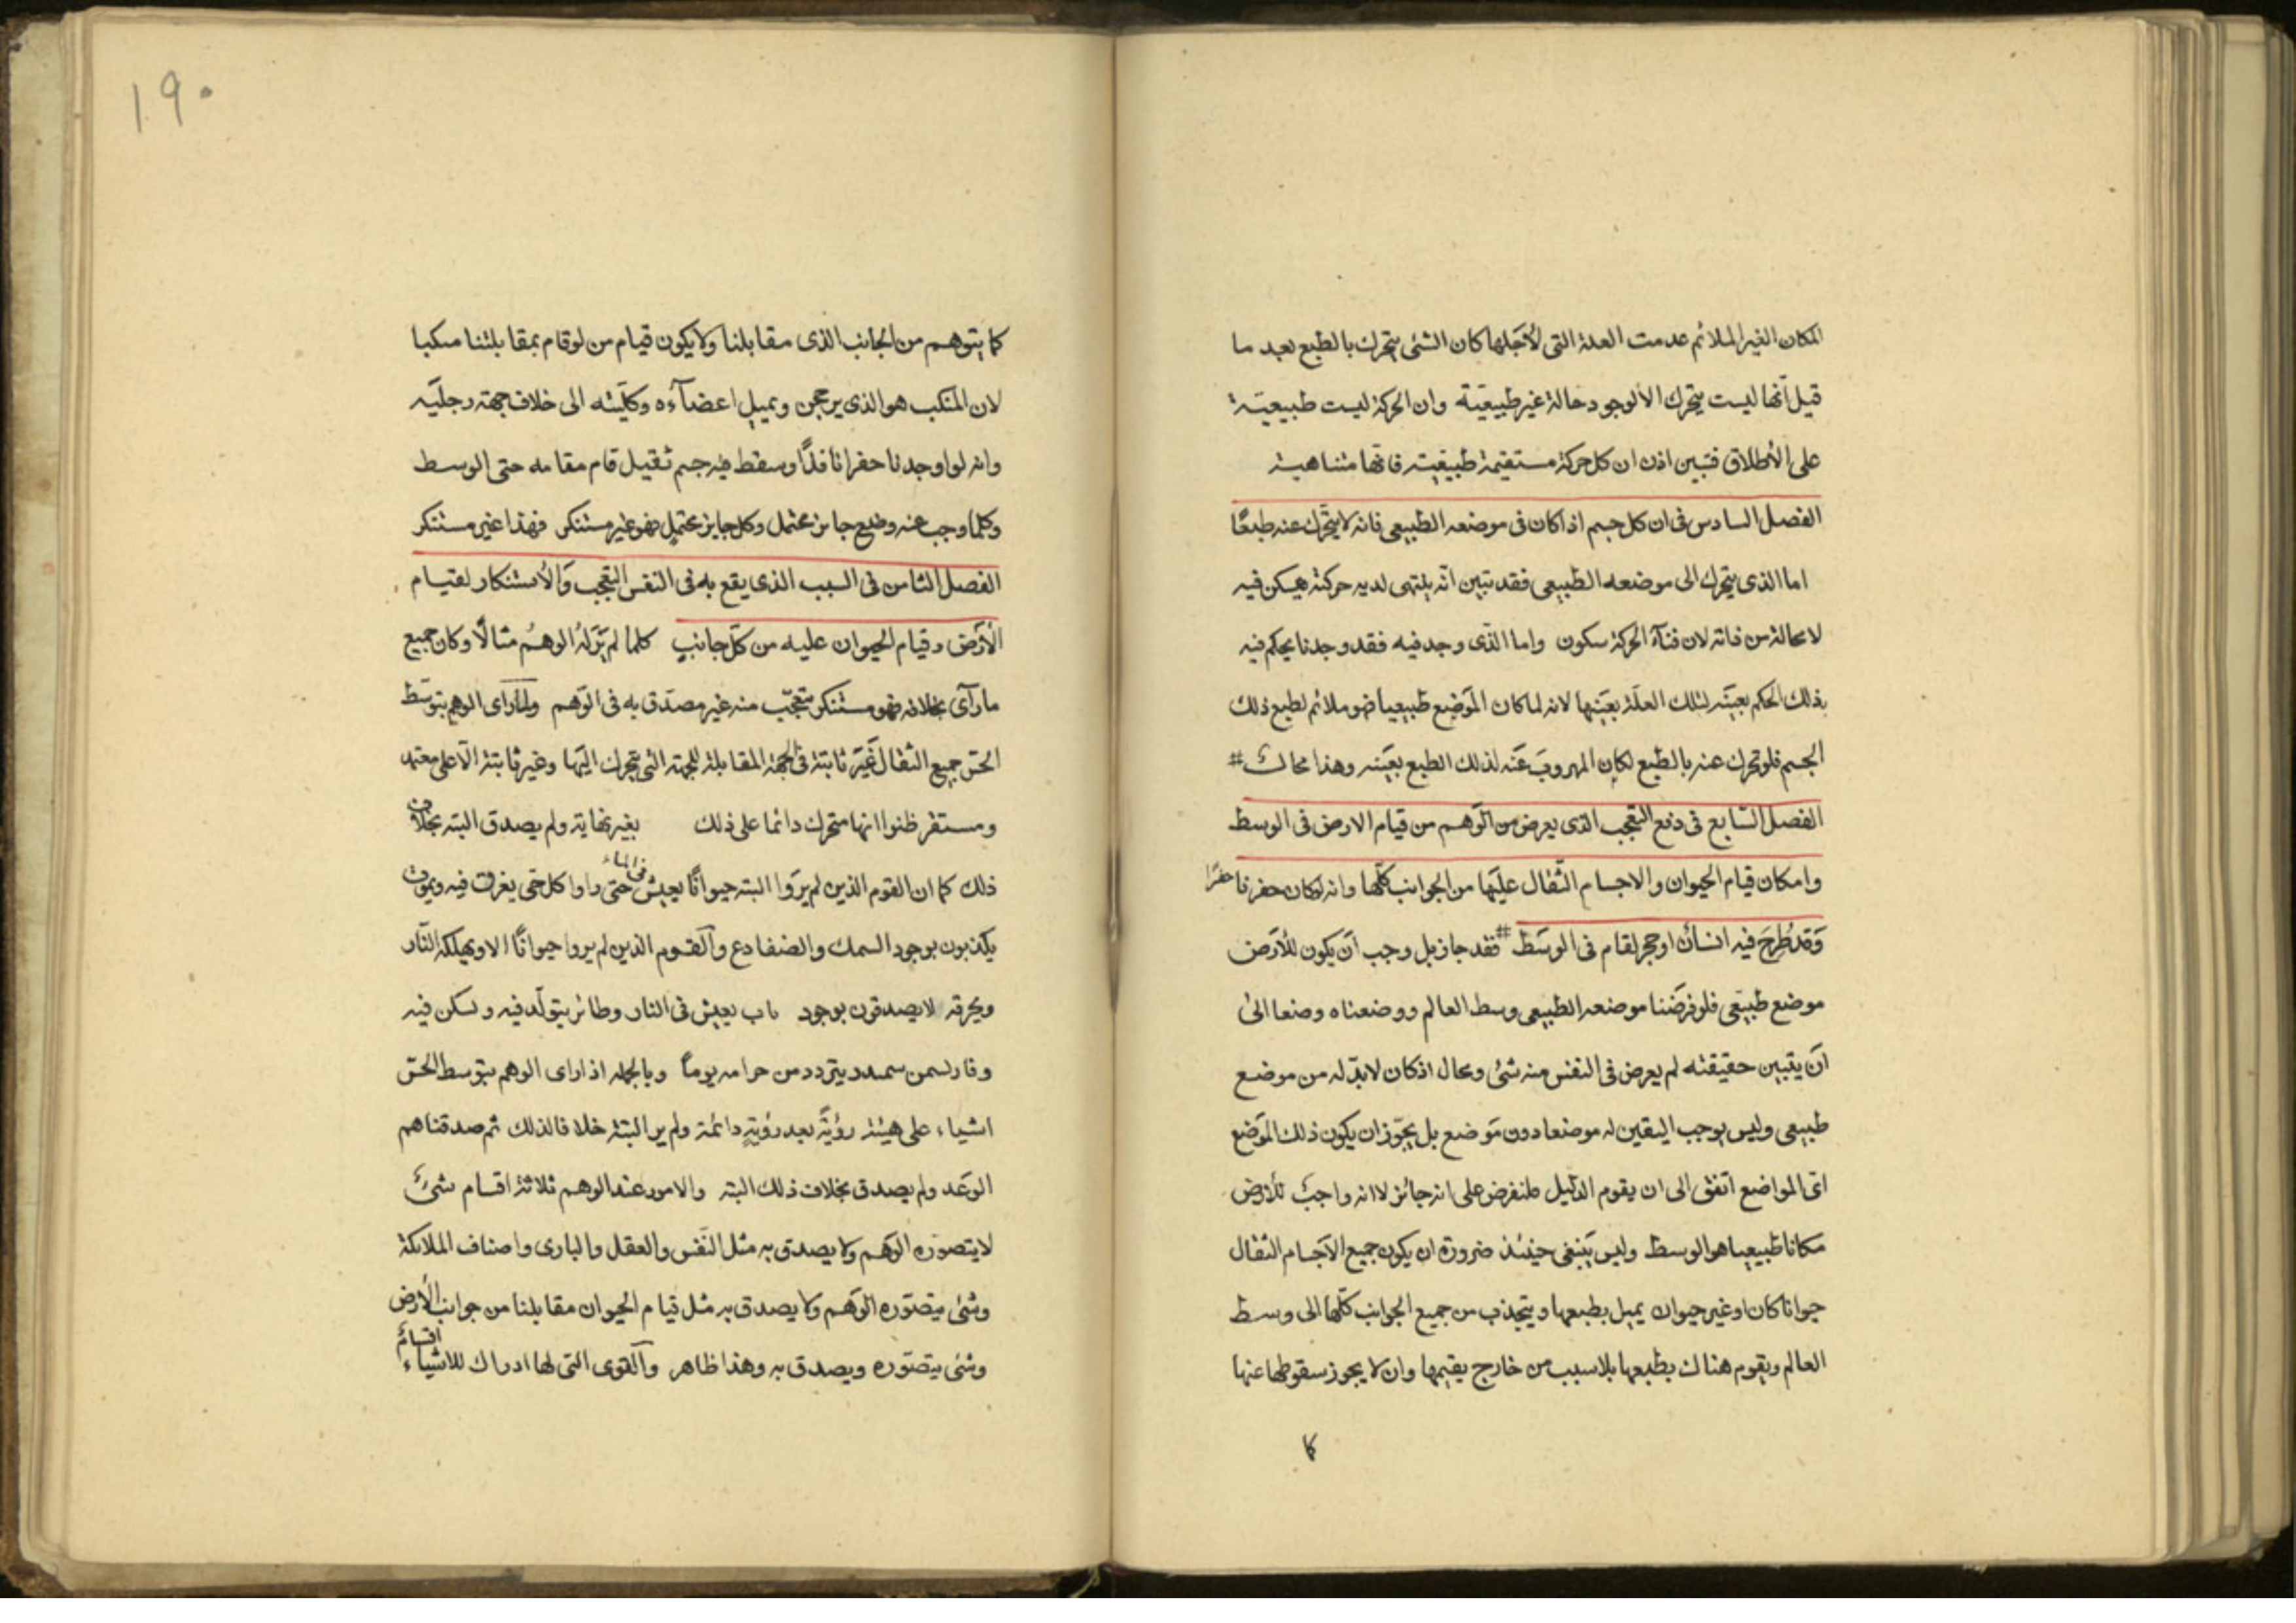 المكان الغير الملائم عدمت العلة التى لأجلها كان الشئ يتحرك بالطبع بعد ما
قيل أنها ليست يتحرك الا لوجود حالة غير طبيعيّة وان الحركة ليست طبيعيّة
على الأطلاق فتبين اذن ان كل حركة مستقيمة طبيعيّة فانها متناهية
الفصل السادس فى ان كل جسم اذا كان فى موضعه الطبيعى فانه لا يتحرك عنه طبعًا
اما الذى يتحرك الى موضعه الطبيعى فقد تبين انّه ينتهى لديه حركته فيسكن فيه
لا محالة من ذاته لان فنآء الحركة سكون واما الذى وجد فيه فقد وجدنا يحكم فيه
بذلك الحكم بعينه لتلك العلّة بعينها لانه لما كان الموضع طبيعيا فهو ملائم لطبع ذلك
الجسم فلو تحرك عنه بالطبع لكان المهروب عنه لذلك الطبع بعينه وهذا محال #
الفصل السّابع فى دفع التعجب الذى يعرض من الوهم من قيام الارض فى الوسط
وامكان قيام الحيوان والاجسام الثقال عليها من الجوانب كلّها وانه لو كان حفرنا حفرًا
وقد طُرِحَ فيه انسان او حجر لقام فى الوسط # فقد جاز بل وجب أن يكون للأرض
موضع طبيعى فلو فرضنا موضعه الطبيعى وسط العالم ووضعناه وضعا الى
أن يتبين حقيقته لم يعرض فى النفس منه شئ ومحال اذ كان لا بدّ له من موضع
طبيعى وليس يوجب اليقين له موضعا دون موضع بل يجوز ان يكون ذلك الموضع
اى المواضع اتفق الى ان يقوم الدليل فلنفرض على انه جائز لا انه واجب للأرض
مكانا طبيعيا هو الوسط وليس ينبغى حينئذ ضرورة ان يكون جميع الاجسام الثقال
حيوانا كان او غير حيوان يميل بطبعها ويتجذب من جميع الجوانب كلّها الى وسط
العالم ويقوم هناك بطبعها بلا سبب من خارج يقيمها وان لا يجوز سقوطها عنها
كا
١٩٠
كما يتوهم من الجانب الذى مقابلنا ولا يكون قيام من لو قام بمقابلتنا منكبا
لان المنكب هو الذى يرجحن ويميل اعضآءه وكلّيته الى خلاف جهة رجليه
وانه لو اوجدنا حفرا نافذًا وسقط فيه جسم ثقيل قام مقامه حتى الوسط
وكلما وجب عنه وضع جائز محتمل وكل جايز محتمل فهو غير مستنكر فهذا غير مستنكر
الفصل الثامن فى السبب الذى يقع به فى النفس التعجب والأستنكار لقيام
الأرض وقيام الحيوان عليه من كلّ جانبٍ كلما لم يَرَ لهُ الوهمُ مثالًا وكان جميع
ما رآى بخلافه فهو مستنكر متعجّب منه غير مصدّق به فى الوهم ولما راى الوهم بتوسّط
الحسّ جميع الثقال غير ثابتة فى الجهة المقابلة للجهة التى يتحرك اليها وغير ثابتة الّا على معتمد
ومستقر ظنوا انها متحرك دائما على ذلك بغير نهاية ولم يصدق البتة بخلاف
ذلك كما ان القوم الذين لم يرَوا البته حيوانًا يعيش فى الماء حتى راوا كل حى يغرق فيه ويموت
يكذبون بوجود السمك والضفادع والقوم الذين لم يروا حيوانًا الا ويهلكه النّار
ويحرقه لا يصدقون بوجود باب يعيش فى النار وطائر يتولّد فيه ويسكن فيه
يتردد من يوماً وبالجمله اذا راى الوهم بتوسط الحسّ
اشياء على هيئة رؤيةً بعد رؤيةٍ دائمة ولم ير البتة خلافا لذلك ثم صدقناهم
الوعد ولم يصدق بخلاف ذلك البتة والامور عند الوهم ثلاثة اقسام شئ
لا يتصوره الوهم ولا يصدق به مثل النّفس والعقل والبارى واصناف الملائكة
وشئ يتصوّره الوهم ولا يصدق به مثل قيام الحيوان مقابلنا من جوانب الأرض
وشئ يتصوّره ويصدق به وهذا ظاهر والقوى التى لها ادراك للاشياء اقسامٌ